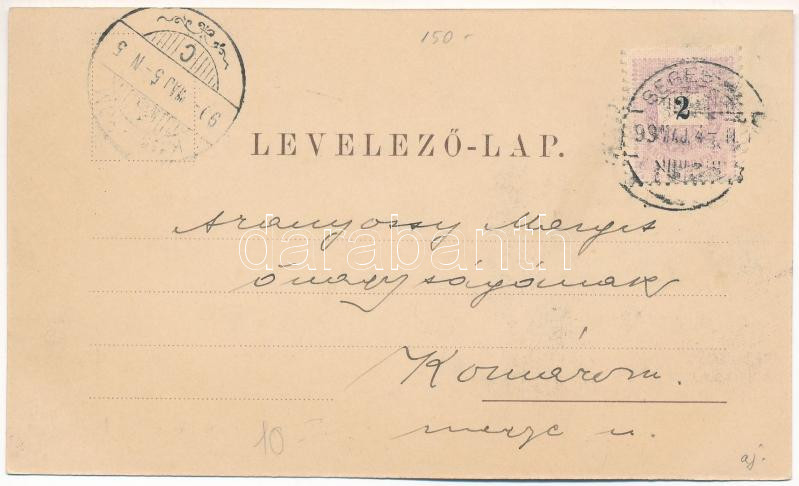 150.-
C
99 MAJ 5-N 5
SEGES
2
99 MÁJ. 4-
LEVELEZŐ-LAP.
Aranyossy Margit
őnagyságának
darabanth
Komárom.
megye u.
10-
aj.